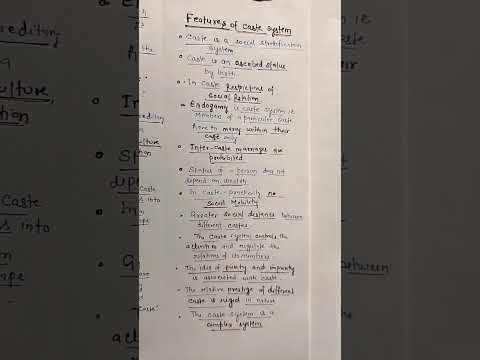 Features of caste system
• Caste is a social stratification
system
• Caste is an ascribed status
by birth
• In caste Restrictions of
social relation
• Endogamy is caste system i.e
Members of a particular caste
have to marry within their
caste only
• Inter-caste marriages are
prohibited
• Status of a person does not
depend on wealth
• In caste - practically no
social Mobility
• Greater social distance between
different castes
• The caste system controls the
activities and regulate the
relations of its members
• The idea of purity and impurity
is associated with caste
• The relative prestige of different
caste is rigid in nature
• The caste system is a
complex system
reditary
the
culture
tion
Caste
s into
m
ape
Caste"
In
So
Caste
es into
between